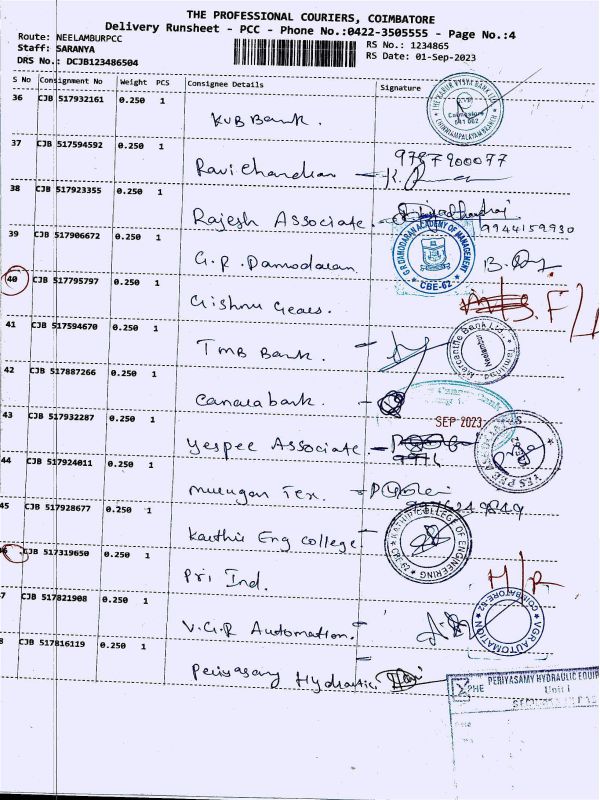 THE PROFESSIONAL COURIERS, COIMBATORE
Delivery Runsheet - PCC - Phone No.:0422-3505555 - Page No.:4
Route: NEELAMBURPCC
RS No.: 1234865
Staff: SARANYA
RS Date: 01-Sep-2023
DRS No.: DCJB123486504
S No Consignment No Weight PCS Consignee Details Signature
36 CJB 517932161 0.250 1
KVB Bank.
THE KARUR VYSYA BANK LTD
Coimbatore
641 062
37 CJB 517594592 0.250 1
9787900077
Ravi Chandran
38 CJB 517923355 0.250 1
Rajesh Associate
9944159930
39 CJB 517906672 0.250 1
G.R. Damodaran
G.R. DAMODARAN ACADEMY OF MANAGEMENT
CBE-62
40 CJB 517795797 0.250 1
Grishnu Gears.
41 CJB 517594670 0.250 1
TMB Bank.
Mercantile Bank Ltd.
Neelambur
42 CJB 517887266 0.250 1
Canara bank.
SEP 2023
43 CJB 517932287 0.250 1
Yespee Associate
YESPEE
44 CJB 517924011 0.250 1
Murugan Tex.
45 CJB 517928677 0.250 1
Kathir Eng College
KATHIR COLLEGE OF ENGINEERING
46 CJB 517319650 0.250 1
Pri Ind.
H/R
7 CJB 517821908 0.250 1
V.G.R Automation.
VGR AUTOMATION
COIMBATORE-62
8 CJB 517816119 0.250 1
Periyasamy Hydraulic
PERIYASAMY HYDRAULIC EQUIP
Unit I